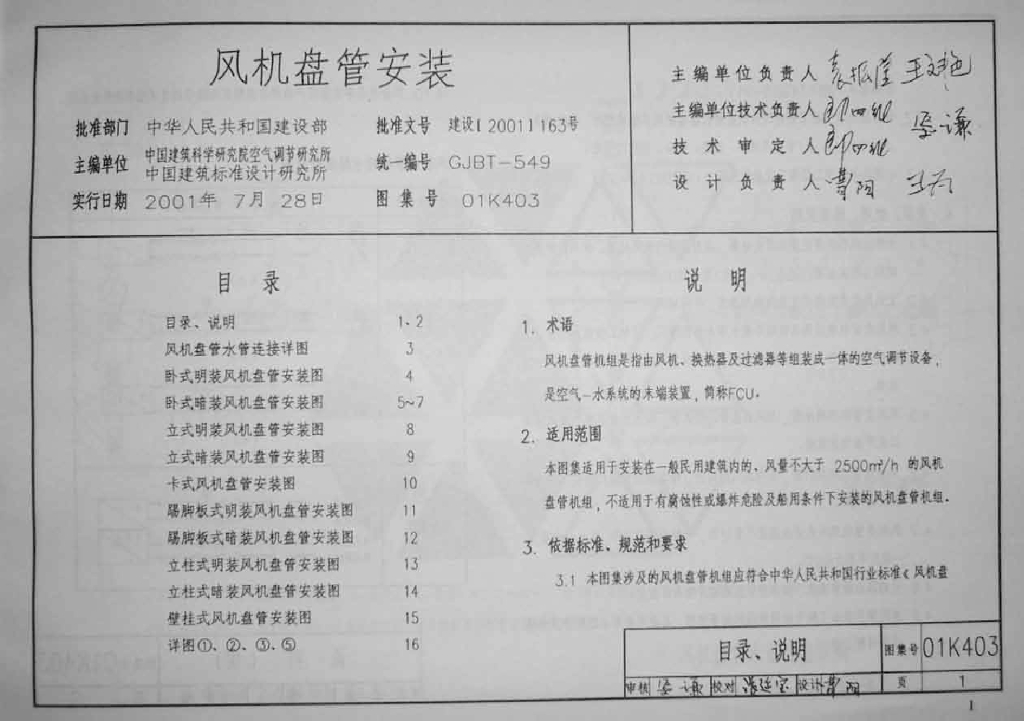 风机盘管安装
批准部门 中华人民共和国建设部 批准文号 建设[2001]163号
主编单位 中国建筑科学研究院空气调节研究所
中国建筑标准设计研究所 统一编号 GJBT-549
实行日期 2001年 7月 28日 图集号 01K403
主编单位负责人
主编单位技术负责人
技术审定人
设计负责人
目录
目录、说明 1、2
风机盘管水管连接详图 3
卧式明装风机盘管安装图 4
卧式暗装风机盘管安装图 5~7
立式明装风机盘管安装图 8
立式暗装风机盘管安装图 9
卡式风机盘管安装图 10
踢脚板式明装风机盘管安装图 11
踢脚板式暗装风机盘管安装图 12
立柱式明装风机盘管安装图 13
立柱式暗装风机盘管安装图 14
壁挂式风机盘管安装图 15
详图①、②、③、⑤ 16
说明
1. 术语
风机盘管机组是指由风机、换热器及过滤器等组装成一体的空气调节设备,
是空气-水系统的末端装置,简称FCU。
2. 适用范围
本图集适用于安装在一般民用建筑内的、风量不大于 2500m³/h 的风机
盘管机组,不适用于有腐蚀性或爆炸危险及船用条件下安装的风机盘管机组。
3. 依据标准、规范和要求
3.1 本图集涉及的风机盘管机组应符合中华人民共和国行业标准《风机盘
目录、说明 图集号 01K403
审核 校对 设计 页 1
1